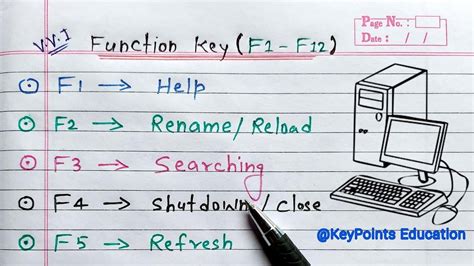 V.V.I
Function Key (F1 - F12)
Page No.:
Date: / /
⊙ F1 → Help
⊙ F2 → Rename/Reload
⊙ F3 → Searching
⊙ F4 → Shutdown/Close
⊙ F5 → Refresh
@KeyPoints Education